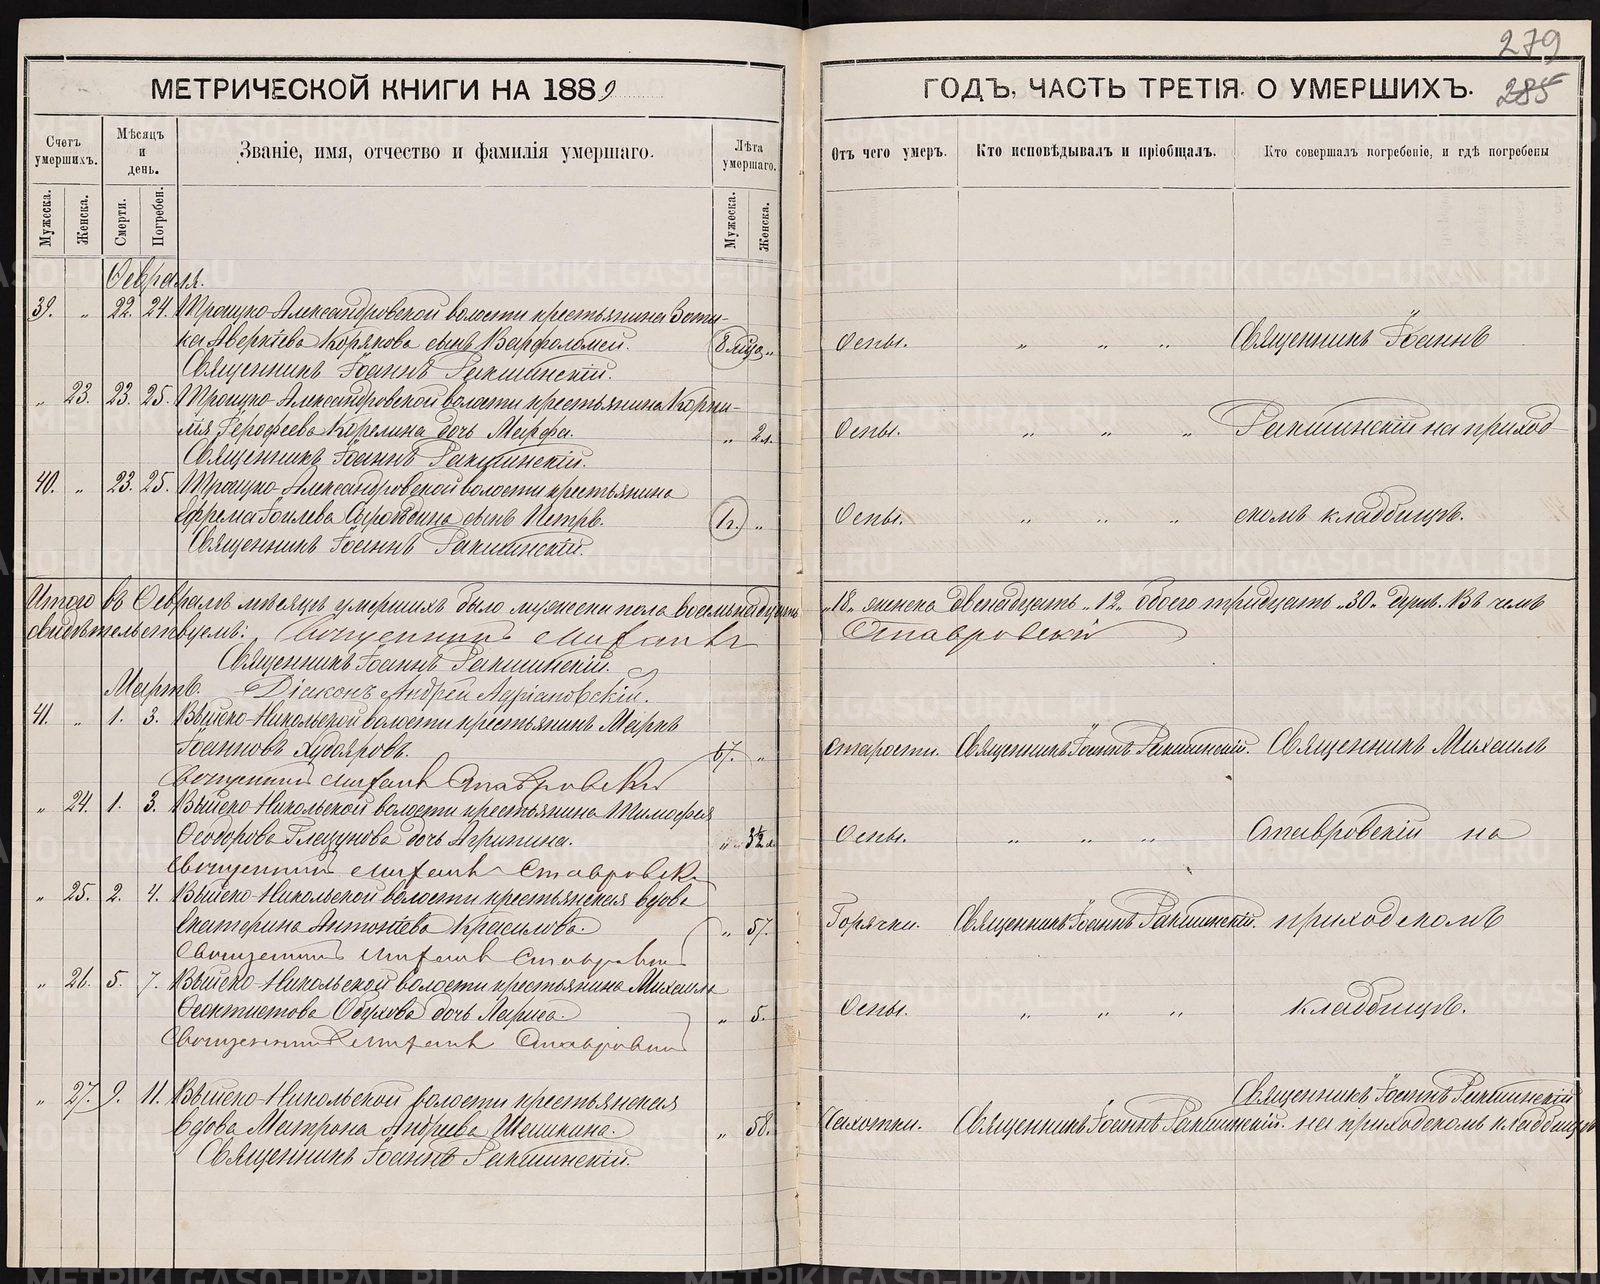 279
МЕТРИЧЕСКОЙ КНИГИ НА 1889
ГОДЪ, ЧАСТЬ ТРЕТІЯ. О УМЕРШИХЪ.
285
Счетъ умершихъ.
Мѣсяцъ и день.
Званіе, имя, отчество и фамилія умершаго.
Лѣта умершаго.
Отъ чего умеръ.
Кто исповѣдывалъ и пріобщалъ.
Кто совершалъ погребеніе, и гдѣ погребены
Мужеска.
Женска.
Смерти.
Погребен.
Мужеска.
Женска.
Февраля.
39. „ 22. 24. Троицко-Александровской волости крестьянина Зоти-
ка Аверкіева Корякова сынъ Варфоломей. 8 мѣс. „ Оспы. „ „ „ Священникъ Іоаннъ
Священникъ Іоаннъ Ракшинскій.
„ 23. 23. 25. Троицко-Александровской волости крестьянина Корни-
лія Ерофеева Корелина дочь Марфа. „ 2 л. Оспы. „ „ „ Ракшинскій на приход
Священникъ Іоаннъ Ракшинскій.
40. „ 23. 25. Троицко-Александровской волости крестьянина
Ефрема Іоилева сынъ Петръ. „ Оспы. „ „ „ скомъ кладбищѣ.
Священникъ Іоаннъ Ракшинскій.
Итого въ Февралѣ мѣсяцѣ умершихъ было мужеска пола восемьнадцать „18„ женска двенадцать „12„ обоего тридцать „30„ душъ. Въ чемъ
свидѣтельствуемъ: Священникъ Михаилъ Ставровскій
Священникъ Іоаннъ Ракшинскій.
Мартъ. Діаконъ Андрей Адріановскій.
41. „ 1. 3. Выйско-Никольской волости крестьянинъ Маркъ
Іоанновъ Худояровъ. 67. „ Старости. Священникъ Іоаннъ Ракшинскій. Священникъ Михаилъ
Священникъ Михаилъ Ставровскій
„ 24. 1. 3. Выйско-Никольской волости крестьянина Тимофея
Ѳеодорова Глазунова дочь Агрипина. „ 3½ Оспы. „ „ „ Ставровскій на
Священникъ Михаилъ Ставровскій
„ 25. 2. 4. Выйско-Никольской волости крестьянская вдова
Екатерина Антоніева Красилова. „ 57. Горячки. Священникъ Іоаннъ Ракшинскій. приходскомъ
Священникъ Михаилъ Ставровскій
„ 26. 5. 7. Выйско-Никольской волости крестьянина Михаила
Ѳеоктистова Обухова дочь Лариса. „ 5. Оспы. „ „ „ кладбищѣ.
Священникъ Михаилъ Ставровскій
„ 27. 9. 11. Выйско-Никольской волости крестьянская Священникъ Іоаннъ Ракшинскій
вдова Матрона Андреева Шешкина. „ 58. Чахотки. Священникъ Іоаннъ Ракшинскій. на приходскомъ кладбищѣ
Священникъ Іоаннъ Ракшинскій.
METRIKI.GASO-URAL.RU